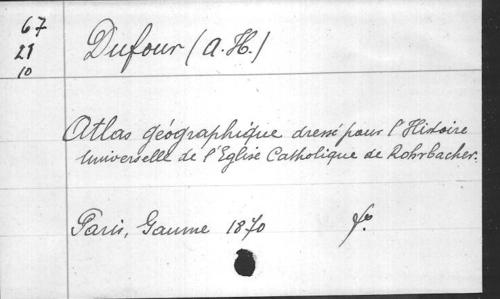 67
21
10
Dufour (A.H.)
Atlas géographique dressé pour l'Histoire
Universelle de l'Eglise Catholique de Rohrbacher.
Paris, Gaume 1870 fo.